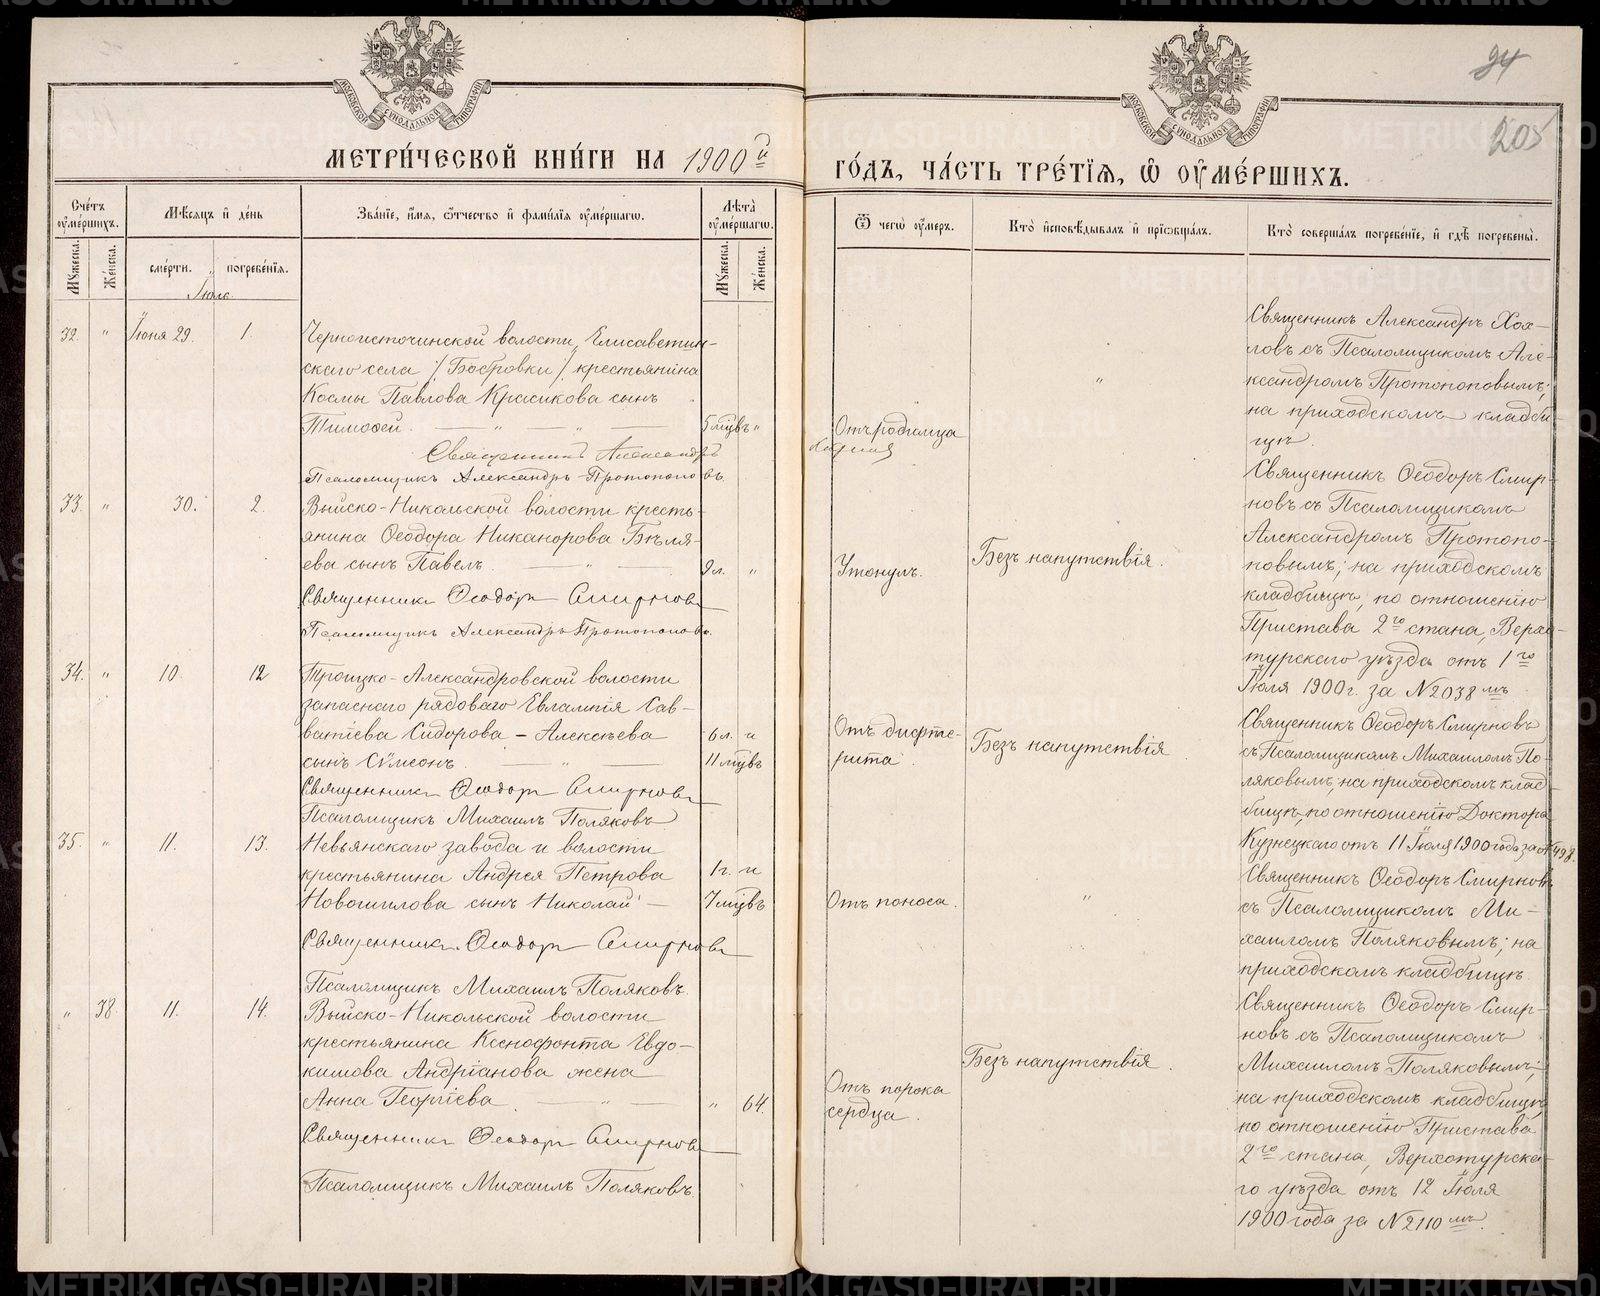 94
205
МОСКОВСКОЙ СѴНОДАЛЬНОЙ ТИПОГРАФІИ
МОСКОВСКОЙ СѴНОДАЛЬНОЙ ТИПОГРАФІИ
МЕТРИ́ЧЕСКОЙ КНИ́ГИ НА 1900й
ГО́ДЪ, ЧА́СТЬ ТРЕ́ТІЯ, Ѽ ОУМЕ́РШИХЪ.
Счетъ оумершихъ.
Мѣсяцъ и день
Званіе, имя, отчество и фамилія оумершагѡ.
Лѣта оумершагѡ.
Мужеска.
Женска.
смерти.
погребенія.
Мужеска.
Женска.
Іюль
Ѿ чегѡ оумеръ.
Кто исповѣдывалъ и пріобщалъ.
Кто совершалъ погребеніе, и гдѣ погребены.
32. " Іюня 29. 1.
Черноисточинской волости, Елисаветин-
скаго села /Бобровки/ крестьянина
Космы Павлова Красикова сынъ
Тимоѳей. — " — " — 5 мцвъ "
Священникъ Александръ
Псаломщикъ Александръ Протопоповъ.
Отъ родимца
"
Священникъ Александръ Хох-
ловъ съ Псаломщикомъ Але-
ксандромъ Протопоповымъ;
на приходскомъ кладби-
щѣ.
33. " 30. 2.
Выйско-Никольской волости кресть-
янина Ѳеодора Никанорова Бѣля-
ева сынъ Павелъ. — " — 9 л. "
Священникъ Ѳеодоръ Смирновъ
Псаломщикъ Александръ Протопоповъ.
Утонулъ.
Безъ напутствія.
Священникъ Ѳеодоръ Смир-
новъ съ Псаломщикомъ
Александромъ Протопо-
повымъ; на приходскомъ
кладбищѣ, по отношенію
Пристава 2го стана, Верхо-
турскаго уѣзда отъ 1го
Іюля 1900 г. за № 2038мъ
34. " 10. 12
Троицко-Александровской волости
запаснаго рядоваго Евлампія Сав-
ватіева Сидорова - Алексѣева 6 л. и
сынъ Сѵмеонъ. — " — 11 мцвъ
Священникъ Ѳеодоръ Смирновъ
Псаломщикъ Михаилъ Поляковъ
Отъ дифте-
рита.
Безъ напутствія
Священникъ Ѳеодоръ Смирновъ
съ Псаломщикомъ Михаиломъ По-
ляковымъ, на приходскомъ клад-
бищѣ, по отношенію Доктора
Кузнецкаго отъ 11 Іюля 1900 года за № 498.
35. " 11. 13.
Невьянскаго завода и волости
крестьянина Андрея Петрова 1 г. и
Новошилова сынъ Николай — 7 мцвъ
Священникъ Ѳеодоръ Смирновъ
Псаломщикъ Михаилъ Поляковъ.
Отъ поноса.
"
Священникъ Ѳеодоръ Смирновъ
съ Псаломщикомъ Ми-
хаиломъ Поляковымъ; на
приходскомъ кладбищѣ.
" 38. 11. 14.
Выйско-Никольской волости
крестьянина Ксенофонта Евдо-
кимова Андріанова жена
Анна Георгіева. — " — " 64.
Священникъ Ѳеодоръ Смирновъ
Псаломщикъ Михаилъ Поляковъ.
Отъ порока
сердца.
Безъ напутствія.
Священникъ Ѳеодоръ Смир-
новъ съ Псаломщикомъ
Михаиломъ Поляковымъ;
на приходскомъ кладбищѣ,
по отношенію Пристава
2го стана, Верхотурска-
го уѣзда отъ 12 Іюля
1900 года за № 2110мъ.
METRIKI.GASO-URAL.RU